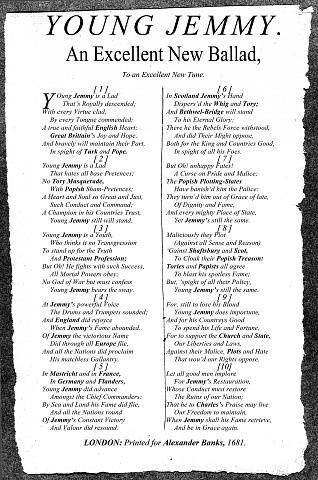 YOUNG JEMMY.
An Excellent New Ballad,
To an Excellent New Tune.
[1]
YOung Jemmy is a Lad
That's Royally descended;
With every Virtue clad,
By every Tongue commended:
A true and faithful English Heart;
Great Britain's Joy and Hope,
And bravely will maintain their Part,
In spight of Turk and Pope.
[2]
Young Jemmy is a Lad
That hates all base Pretences;
No Tory Masquerade,
With Popish Sham-Pretences;
A Heart and Soul so Great and Just,
Such Conduct and Command;
A Champion in his Countries Trust,
Young Jemmy still will stand.
[3]
Young Jemmy is a Youth,
Who thinks it no Transgression
To stand up for the Truth
And Protestant Profession;
But Oh! He fights with such Success,
All Mortal Powers obey;
No God of War but must confess
Young Jemmy bears the sway.
[4]
At Jemmy's powerful Voice
The Drums and Trumpets sounded;
And England did rejoyce
When Jemmy's Fame abounded.
Of Jemmy the victorious Name
Did through all Europe flie,
And all the Nations did proclaim
His matchless Gallantry.
[5]
In Mastricht and in France,
In Germany and Flanders,
Young Jemmy did advance
Amongst the Chief Commanders:
By Sea and Land his Fame did flie,
And all the Nations round
Of Jemmy's Constant Victory
And Valour did resound.
[6]
In Scotland Jemmy's Hand
Dispers'd the Whig and Tory;
And Bothwel-Bridge will stand
To his Eternal Glory:
There he the Rebels Force withstood,
And did Their Might oppose,
Both for the King and Countries Good,
In spight of all his Foes.
[7]
But Oh! unhappy Fates!
A Curse on Pride and Malice:
The Popish Plotting-States
Have banish'd him the Palace:
They turn'd him out of Grace of late,
Of Dignity and Fame,
And every mighty Place of State,
Yet Jemmy's still the same.
[8]
Maliciously they Plot
(Against all Sense and Reason)
'Gainst Shaftsbury and Scot,
To Cloak their Popish Treason:
Tories and Papists all agree
To blast his spotless Fame;
But, 'spight of all their Policy,
Young Jemmy's still the same.
[9]
For, still to lose his Blood
Young Jemmy does importune,
And for his Countreys Good
To spend his Life and Fortune,
For to support the Church and State,
Our Liberties and Laws,
Against their Malice, Plots and Hate
That wou'd our Rights oppose.
[10]
Let all good men implore
For Jemmy's Restauration,
Whose Conduct must restore
The Ruins of our Nation;
That he to Charles's Praise may live
Our Freedom to maintain,
When Jemmy shall his Fame retrieve,
And be in Grace again.
LONDON: Printed for Alexander Banks, 1681.